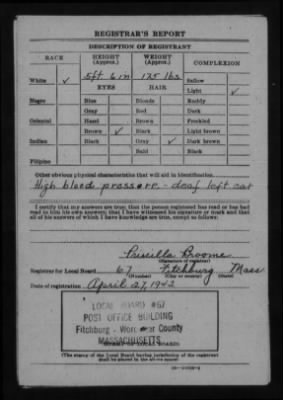 REGISTRAR'S REPORT
DESCRIPTION OF REGISTRANT
RACE HEIGHT (Approx.) WEIGHT (Approx.) COMPLEXION
White ✓ 5ft 6 in 125 lbs Sallow
EYES HAIR Light ✓
Negro Blue Blonde Ruddy
Gray Red Dark
Oriental Hazel Brown Freckled
Brown ✓ Black Light brown
Indian Black Gray ✓ Dark brown
Bald Black
Filipino
Other obvious physical characteristics that will aid in identification
High blood pressure - deaf left ear
I certify that my answers are true; that the person registered has read or has had
read to him his own answers; that I have witnessed his signature or mark and that
all of his answers of which I have knowledge are true, except as follows:
Priscilla Broome
(Signature of registrar)
Registrar for Local Board 67 Fitchburg Mass
(Number) (City or county) (State)
Date of registration April 27, 1942
LOCAL BOARD #67
POST OFFICE BUILDING
Fitchburg - Worcester County
MASSACHUSETTS
(STAMP OF LOCAL BOARD)
(The stamp of the Local Board having jurisdiction of the registrant
shall be placed in the above space)